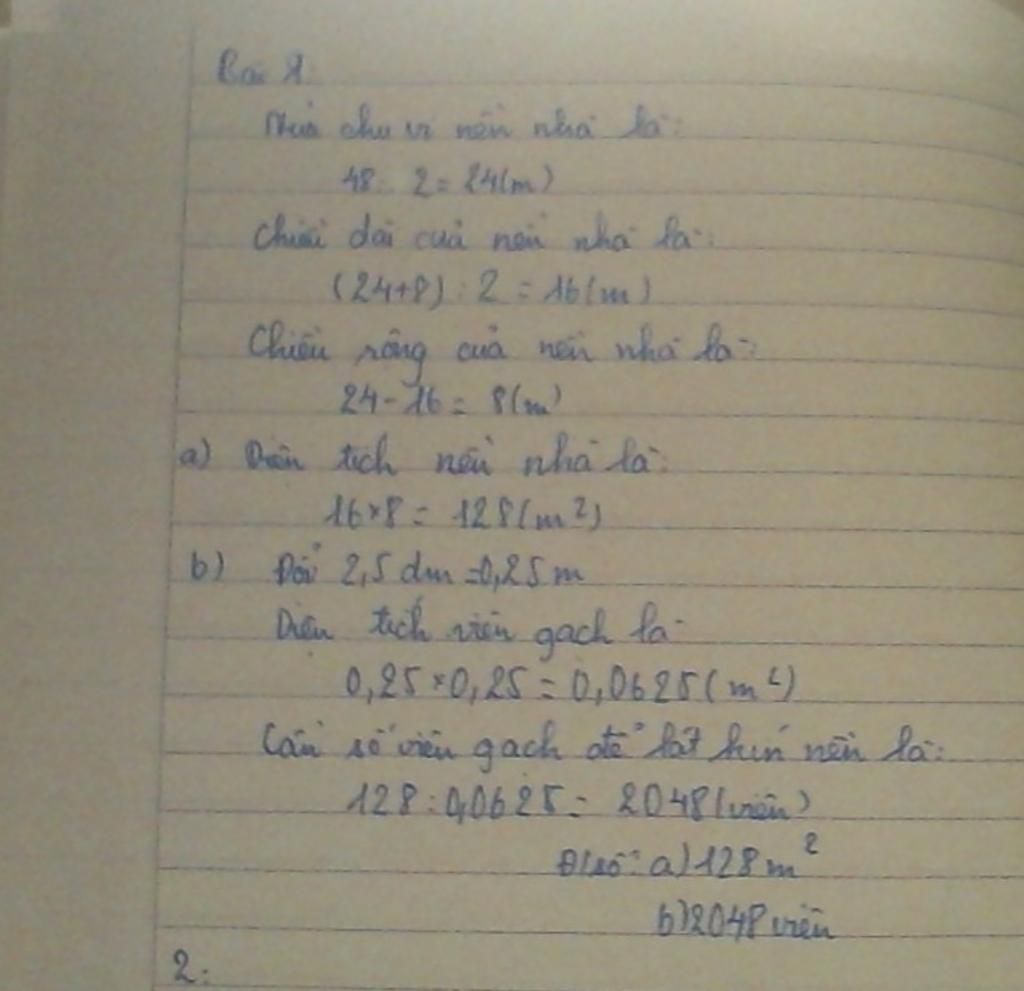 Bài 1:
Nửa chu vi nền nhà là:
48 : 2 = 24(m)
Chiều dài của nền nhà là:
(24+8) : 2 = 16(m)
Chiều rộng của nền nhà là:
24 - 16 = 8(m)
a) Diện tích nền nhà là:
16×8 = 128(m²)
b) Đổi 2,5 dm = 0,25 m
Diện tích viên gạch là
0,25×0,25 = 0,0625(m²)
Cần số viên gạch để lát kín nền là:
128 : 0,0625 = 2048(viên)
Đ/số: a) 128 m²
b) 2048 viên
2: